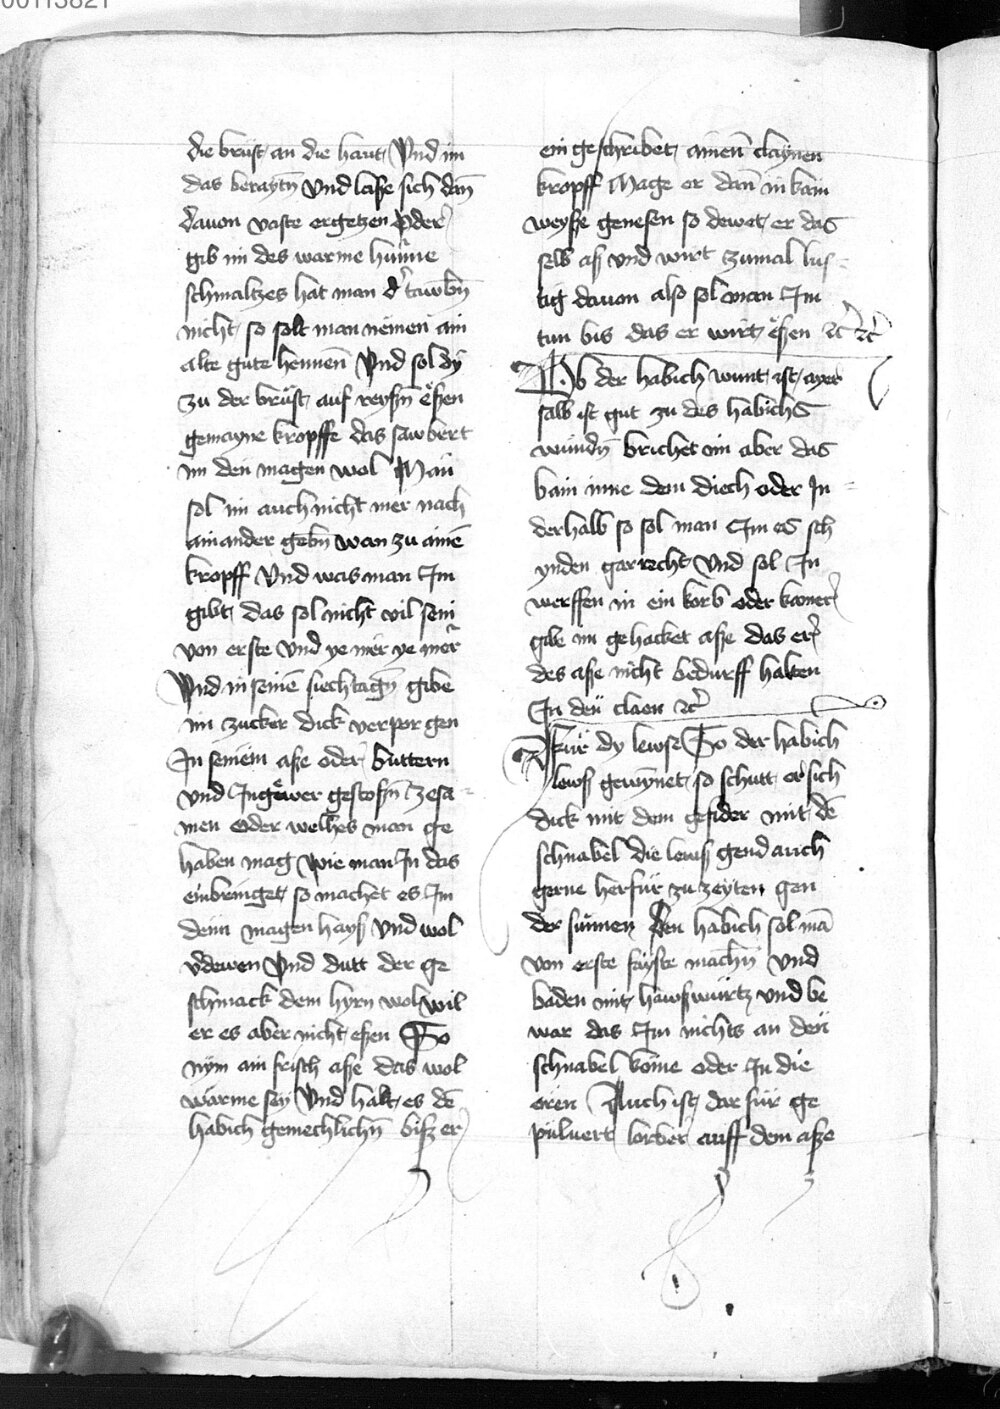 00113821
die brüst an die haut Vnd im
das beraytñ Vnd lasse sich dañ
dauon vaste ergetzen Oder
gib im des warme hünne
schmaltzes hat man d' tawbñ
nicht so solt man nemen ain
alte gute hennen Vnd sol dy
zu der brüst auf reyssñ essen
gemayne kropffe das sawbert
im den magen wol Man
sol im auch nicht mer nach
ainander gebñ wan zu aine
kropff Vnd was man Im
gibt das sol nicht vil sein
von erste Vnd ye mer ye mer
Vnd in seinē siechtagñ gibe
im zucker dick verpor gen
In seinem asse oder buttern
vnd Ingewer gestossñ zesa
men oder welhes man ge
haben mag wie man In das
einbringet so machet es Im
denn magen hayss Vnd wol
v'dewen Vnd dutt der ge
schmack dem hyrn wol wil
er es aber nicht essen So
nym ain frisch asse das wol
warme sey Vnd halt es dē
habich gemechlichñ bisz er
ein geschribet ainen claynen
kropff Mage er dañ in kain
weysse genesen so dewet er das
selb ass vnd wirt zumal lus
tig dauon also sol man Im
tun bis das er wirt essen etc etc
Ob der habich wunt ist ayer
salb ist gut zu des habichs
wundñ brichet im aber das
bain inne dem diech oder In
derhalb so sol man Im es sch
ynden gar recht Vnd sol In
werffen in ein korb oder kamer
gibe im gehacket asse das er
des asse nicht bedurff halten
In den claen etc
Für dy lewse So der habich
lewss gewynnet so schutt er sich
dick mit dem gefider mit dē
schnabel die lewss gend auch
gerne herfür zu zeyten gen
der sunnen Den habich sol mā
von erste fayste machñ Vnd
baden mit hawsswurtz vnd be
war das Im nichts an den
schnabel kome oder In die
oren Auch ist dar für ge
puluert lorber auff dem asse